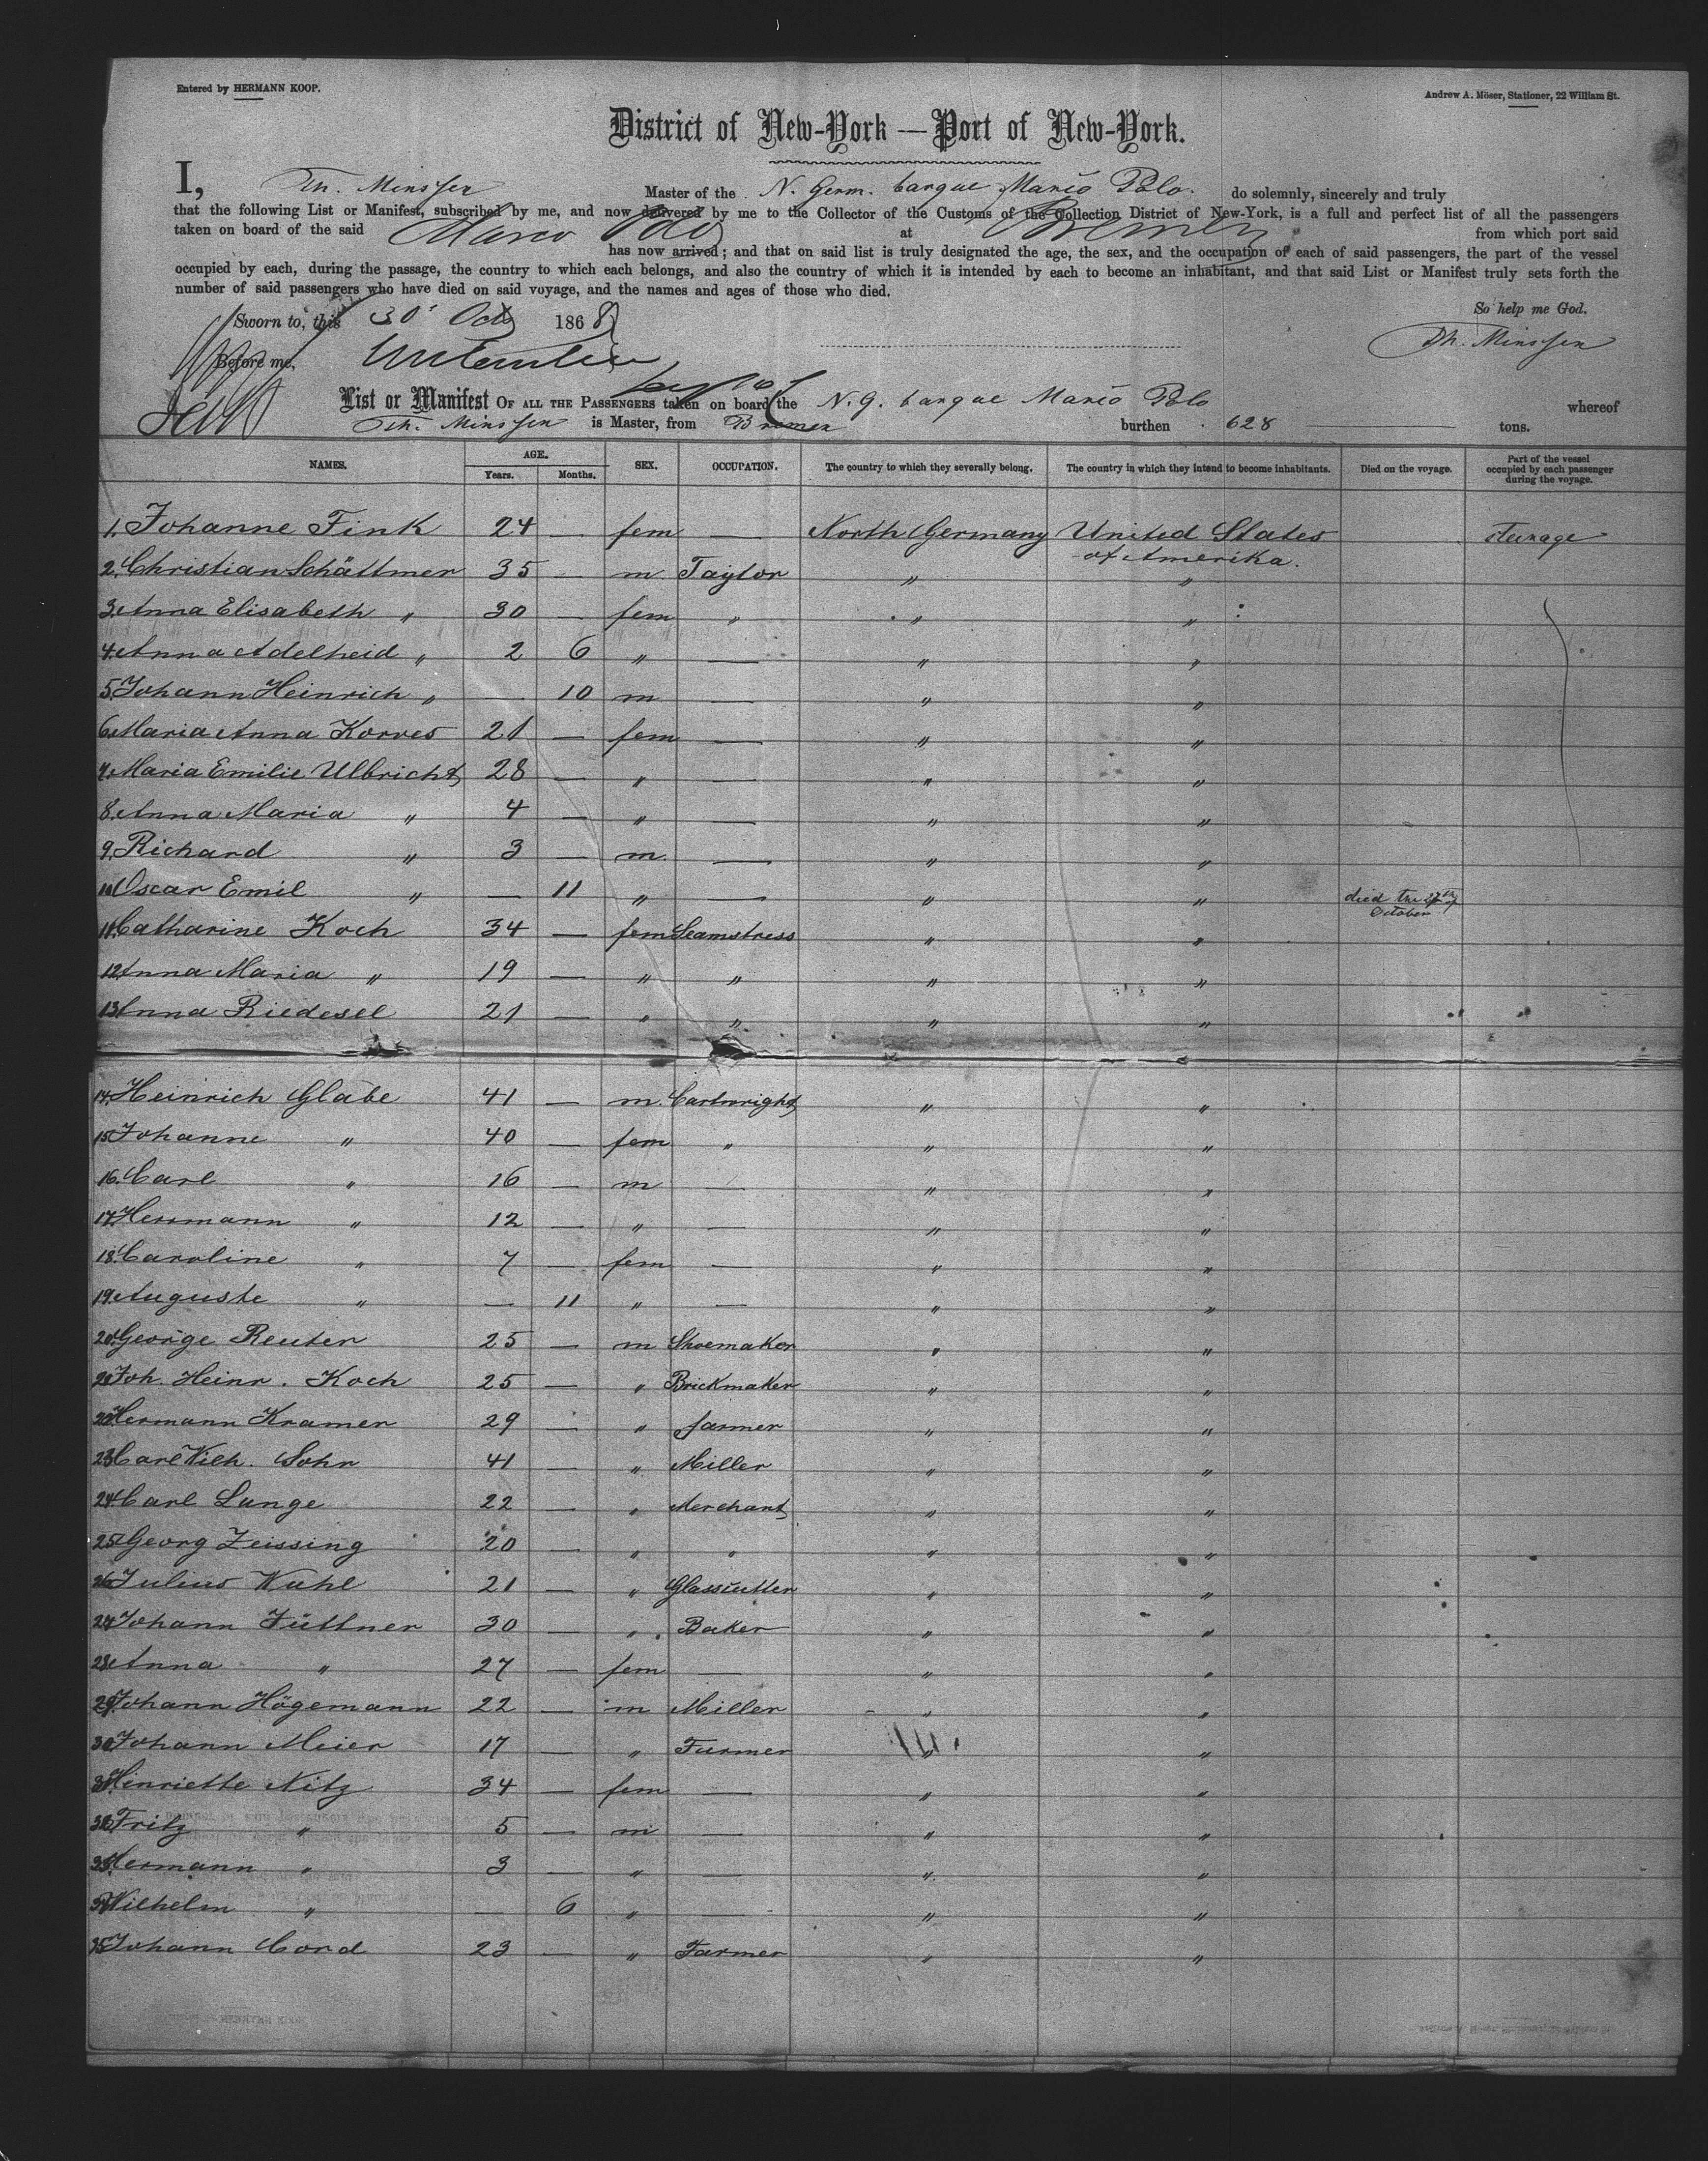 Entered by HERMANN KOOP.
Andrew A. Möser, Stationer, 22 William St.
District of New-York — Port of New-York.
I, Th. Minssen Master of the N. Germ. barque Marco Polo. do solemnly, sincerely and truly
that the following List or Manifest, subscribed by me, and now delivered by me to the Collector of the Customs of the Collection District of New-York, is a full and perfect list of all the passengers
taken on board of the said Marco Polo at Bremen from which port said
has now arrived; and that on said list is truly designated the age, the sex, and the occupation of each of said passengers, the part of the vessel
occupied by each, during the passage, the country to which each belongs, and also the country of which it is intended by each to become an inhabitant, and that said List or Manifest truly sets forth the
number of said passengers who have died on said voyage, and the names and ages of those who died.
So help me God.
Sworn to, this 30' Oct 1868
Th. Minssen
Before me,
List or Manifest OF ALL THE PASSENGERS taken on board the N. G. barque Marco Polo whereof
Th. Minssen is Master, from Bremen burthen 628 tons.
NAMES. AGE. Years. Months. SEX. OCCUPATION. The country to which they severally belong. The country in which they intend to become inhabitants. Died on the voyage. Part of the vessel occupied by each passenger during the voyage.
1. Johanne Fink 24 — fem — North Germany United States of Amerika. steerage
2. Christian Schättmer 35 — m Taylor " "
3. Anna Elisabeth " 30 — fem " " "
4. Anna Adelheid " 2 6 " — " "
5. Johann Heinrich " — 10 m — " "
6. Maria Anna Korves 21 — fem — " "
7. Maria Emilie Ulbricht 28 — " — " "
8. Anna Maria " 4 — " — " "
9. Richard " 3 — m. — " "
10. Oscar Emil " — 11 " — " " died the 27th of October
11. Catharine Koch 34 — fem Seamstress " "
12. Anna Maria " 19 — " " " "
13. Anna Riedesel 21 — " " " "
14. Heinrich Glabe 41 — m. Cartwright " "
15. Johanne " 40 — fem " " "
16. Carl " 16 — m — " "
17. Herrmann " 12 — " — " "
18. Caroline " 7 — fem — " "
19. Auguste " — 11 " — " "
20. George Reuter 25 — m Shoemaker " "
21. Joh. Heinr. Koch 25 — " Brickmaker " "
22. Hermann Kramer 29 — " farmer " "
23. Carl Wilh. Sohr 41 — " Miller " "
24. Carl Lange 22 — " Merchant " "
25. Georg Zeissing 20 — " " " "
26. Julius Kuhl 21 — " Glasscutter " "
27. Johann Jüttner 30 — " Baker " "
28. Anna " 27 — fem — " "
29. Johann Högemann 22 — m Miller " "
30. Johann Meier 17 — " Farmer " "
31. Henriette Nitz 34 — fem — " "
32. Fritz " 5 — m — " "
33. Hermann " 3 — " — " "
34. Wilhelm " — 6 " — " "
35. Johann Cord 23 — " Farmer " "